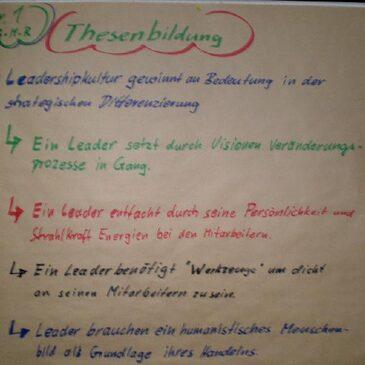 r. 1
Thesenbildung
Leadershipkultur gewinnt an Bedeutung in der
strategischen Differenzierung
Ein Leader setzt durch Visionen Veränderungs-
prozesse in Gang.
Ein Leader entfacht durch seine Persönlichkeit und
Strahlkraft Energien bei den Mitarbeitern.
Ein Leader benötigt "Werkzeuge" um dicht
an seinen Mitarbeitern zu sein.
Leader brauchen ein humanistisches Menschen-
bild als Grundlage ihres Handelns.